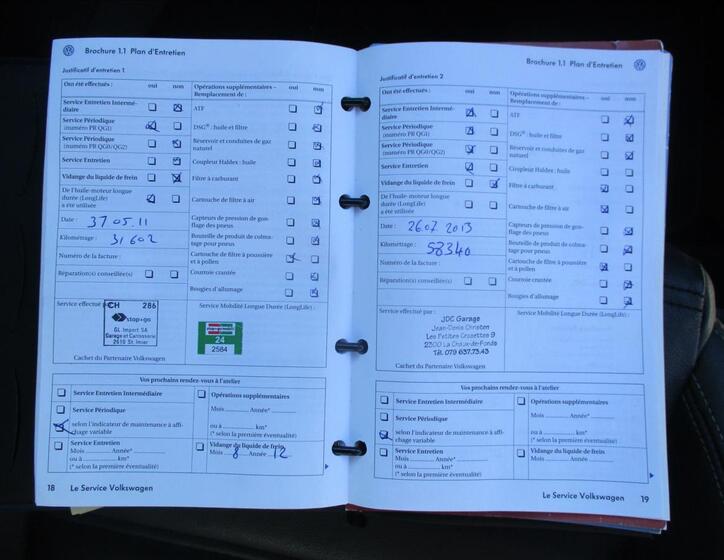 Brochure 1.1 Plan d'Entretien
Justificatif d'entretien 1
Ont été effectués : oui non
Service Entretien Intermé-
diaire
Service Périodique
(numéro PR QG1)
Service Périodique
(numéro PR QG0/QG2)
Service Entretien
Vidange du liquide de frein
De l'huile-moteur longue
durée (LongLife)
a été utilisée
Date : 37 05.11
Kilométrage : 31 602
Numéro de la facture :
Réparation(s) conseillée(s)
Opérations supplémentaires – oui non
Remplacement de :
ATF
DSG® : huile et filtre
Réservoir et conduites de gaz
naturel
Coupleur Haldex : huile
Filtre à carburant
Cartouche de filtre à air
Capteurs de pression de gon-
flage des pneus
Bouteille de produit de colma-
tage pour pneus
Cartouche de filtre à poussière
et à pollen
Courroie crantée
Bougies d'allumage
Service effectué
CH 286
stop+go
GL Import SA
Garage et Carrosserie
2610 St. Imier
Cachet du Partenaire Volkswagen
Service Mobilité Longue Durée (LongLife) :
24
2584
Vos prochains rendez-vous à l'atelier
Service Entretien Intermédiaire
Service Périodique
selon l'indicateur de maintenance à affi-
chage variable
Service Entretien
Mois Année*
ou à km*
(* selon la première éventualité)
Opérations supplémentaires
Mois Année*
ou à km*
(* selon la première éventualité)
Vidange du liquide de frein
Mois 8 Année 12
18 Le Service Volkswagen
Brochure 1.1 Plan d'Entretien
Justificatif d'entretien 2
Ont été effectués : oui non
Service Entretien Intermé-
diaire
Service Périodique
(numéro PR QG1)
Service Périodique
(numéro PR QG0/QG2)
Service Entretien
Vidange du liquide de frein
De l'huile-moteur longue
durée (LongLife)
a été utilisée
Date : 26.07 2013
Kilométrage : 58340
Numéro de la facture :
Réparation(s) conseillée(s)
Opérations supplémentaires – oui non
Remplacement de :
ATF
DSG® : huile et filtre
Réservoir et conduites de gaz
naturel
Coupleur Haldex : huile
Filtre à carburant
Cartouche de filtre à air
Capteurs de pression de gon-
flage des pneus
Bouteille de produit de colma-
tage pour pneus
Cartouche de filtre à poussière
et à pollen
Courroie crantée
Bougies d'allumage
Service effectué par :
JDC Garage
Jean-Denis Christen
Les Petites Crosettes 9
2300 La Chaux-de-Fonds
Tél. 079 637.73.43
Cachet du Partenaire Volkswagen
Service Mobilité Longue Durée (LongLife) :
Vos prochains rendez-vous à l'atelier
Service Entretien Intermédiaire
Service Périodique
selon l'indicateur de maintenance à affi-
chage variable
Service Entretien
Mois Année*
ou à km*
(* selon la première éventualité)
Opérations supplémentaires
Mois Année*
ou à km*
(* selon la première éventualité)
Vidange du liquide de frein
Mois Année
Le Service Volkswagen 19